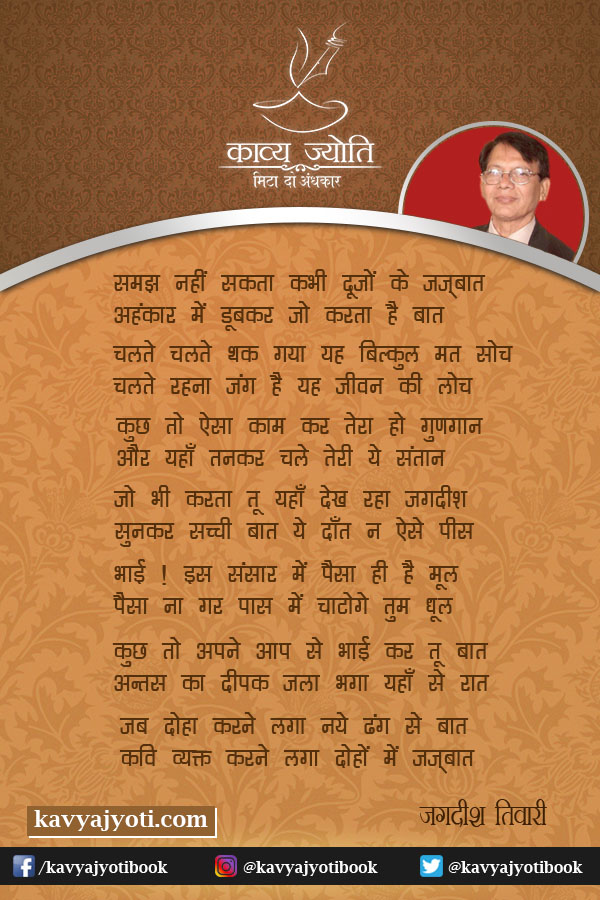 काव्य ज्योति
मिटा दो अंधकार
समझ नहीं सकता कभी दूजों के जज्बात
अहंकार में डूबकर जो करता है बात
चलते चलते थक गया यह बिल्कुल मत सोच
चलते रहना जंग है यह जीवन की लोच
कुछ तो ऐसा काम कर तेरा हो गुणगान
और यहाँ तनकर चले तेरी ये संतान
जो भी करता तू यहाँ देख रहा जगदीश
सुनकर सच्ची बात ये दाँत न ऐसे पीस
भाई ! इस संसार में पैसा ही है मूल
पैसा ना गर पास में चाटोगे तुम धूल
कुछ तो अपने आप से भाई कर तू बात
अन्तस का दीपक जला भगा यहाँ से रात
जब दोहा करने लगा नये ढंग से बात
कवि व्यक्त करने लगा दोहों में जज्बात
जगदीश तिवारी
kavyajyoti.com
/kavyajyotibook @kavyajyotibook @kavyajyotibook